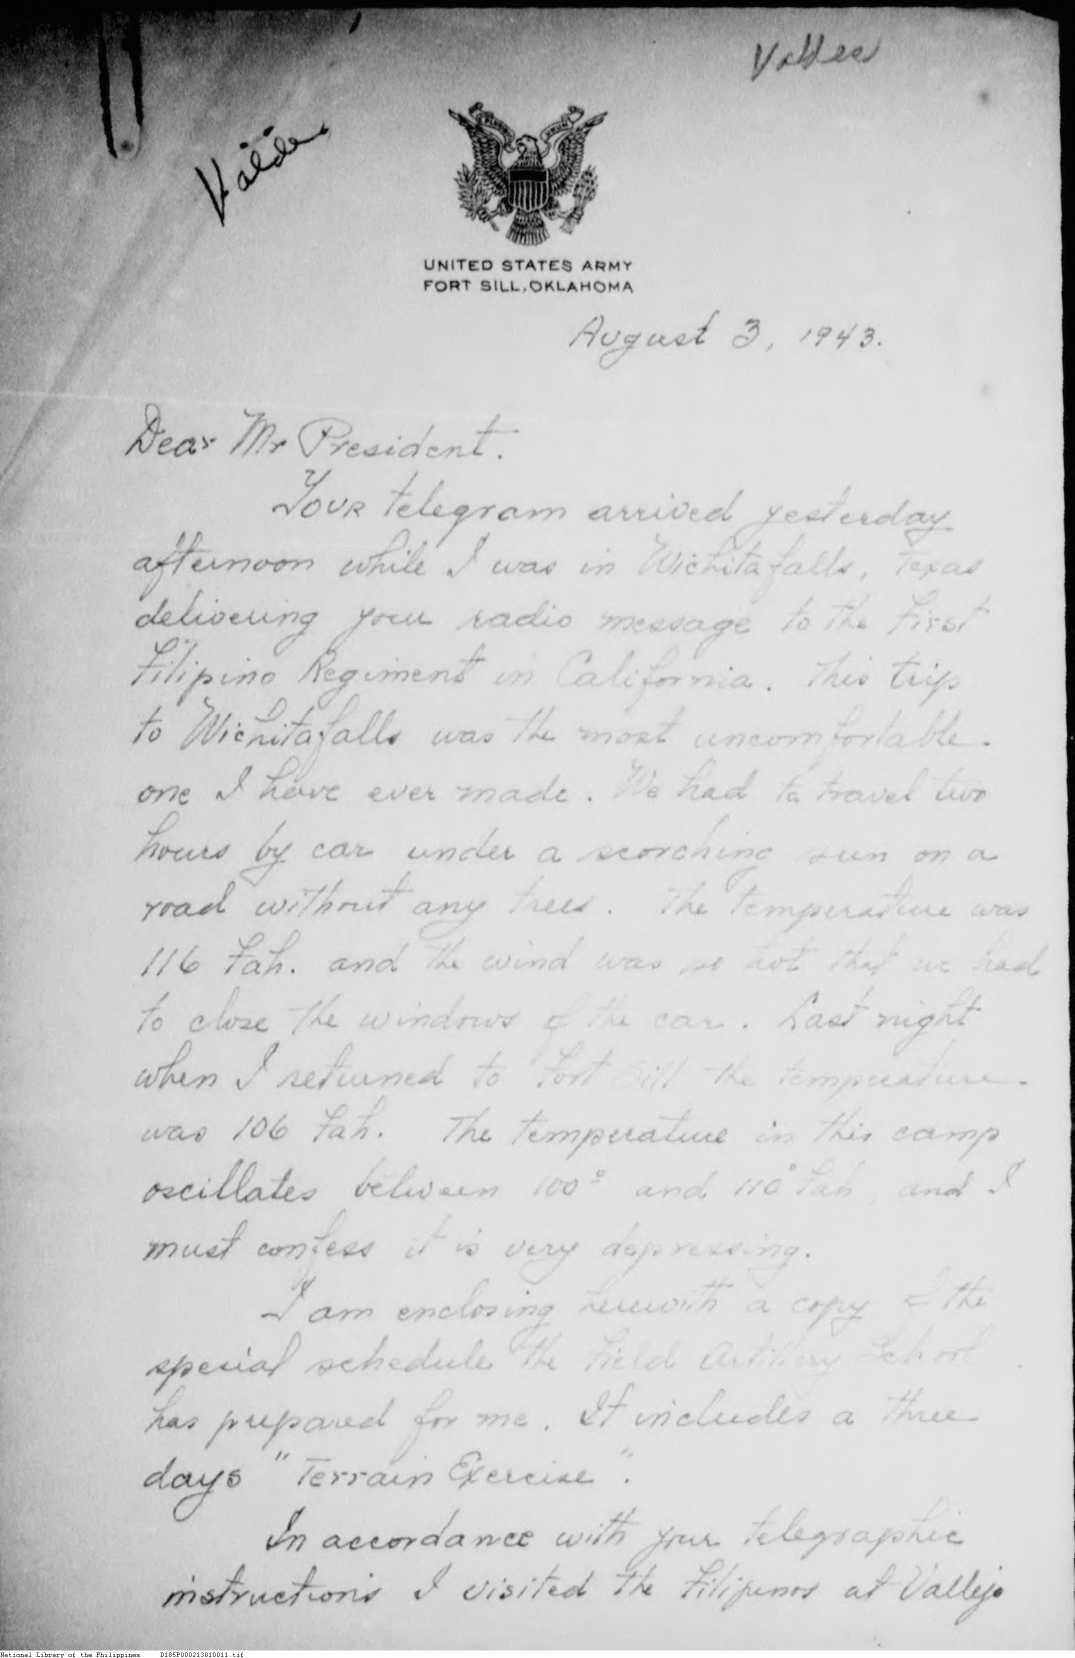 UNITED STATES ARMY
FORT SILL, OKLAHOMA
August 3, 1943.
Dear Mr President.
Your telegram arrived yesterday
afternoon while I was in Wichitafalls, Texas
delivering your radio message to the First
Filipino Regiment in California. This trip
to Wichitafalls was the most uncomfortable
one I have ever made. We had to travel two
hours by car under a scorching sun on a
road without any trees. The temperature was
116 Fah. and the wind was so hot that we had
to close the windows of the car. Last night
when I returned to Fort Sill the temperature
was 106 Fah. The temperature in this camp
oscillates between 100° and 110° Fah, and I
must confess it is very depressing.
I am enclosing herewith a copy of the
special schedule the Field Artillery School
has prepared for me. It includes a three
days "Terrain Exercise".
In accordance with your telegraphic
instructions I visited the Filipinos at Vallejo
National Library of the Philippines D185P000213010011.tif